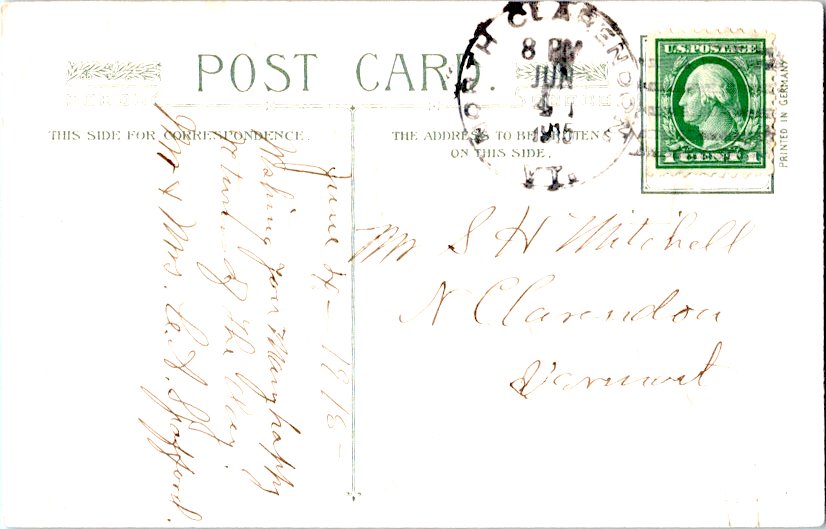 POST CARD.
THIS SIDE FOR CORRESPONDENCE.
THE ADDRESS TO BE WRITTEN
ON THIS SIDE.
NORTH CLARENDON
8 PM
JUN
4
1915
VT.
U.S. POSTAGE
1 CENT 1
PRINTED IN GERMANY
June 4 - 1915 -
Wishing you Many happy
returns of the day.
Mr & Mrs. Spafford.
Mr S H Mitchell
N Clarendon
Vermont